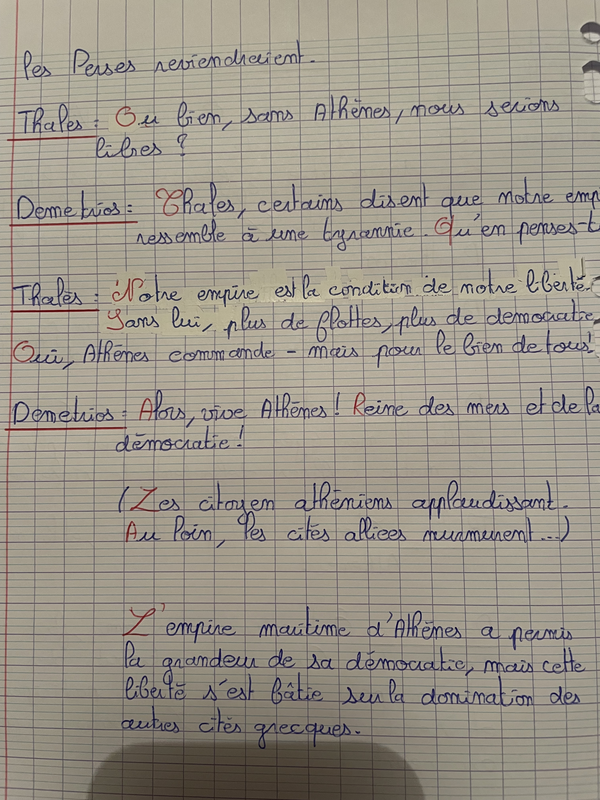 les Perses reviendraient.
Thales : Ou bien, sans Athènes, nous serions
libres ?
Demetrios : Thales, certains disent que notre emp
ressemble à une tyrannie. Qu'en penses-t
Thalès : Notre empire est la condition de notre liberté.
Sans lui, plus de flottes, plus de democratie.
Oui, Athènes commande - mais pour le bien de tous!
Demetrios : Alors, vive Athènes ! Reine des mers et de la
démocratie !
(Les citoyen athéniens applaudissant.
Au loin, les cités alliees murmurent...)
L'empire maritime d'Athènes a permis
la grandeur de sa démocratie, mais cette
liberté s'est bâtie sur la domination des
autres cités grecques.